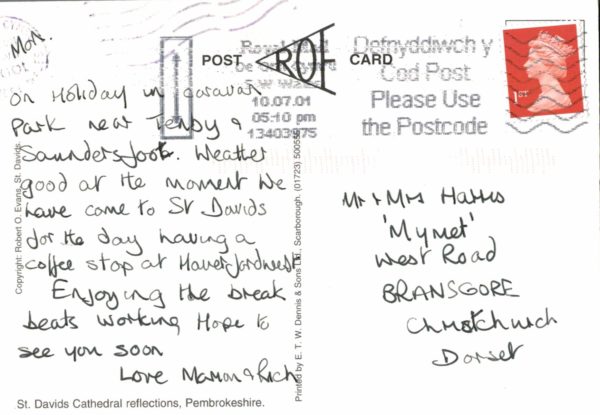 Mon.
on Holiday in caravan
Park near Tenby &
Saundersfoot. Weather
good at the moment we
have come to St Davids
for the day having a
coffee stop at Haverfordwest
Enjoying the break
beats working Hope to
see you soon
Love Marion & Rich
St. Davids Cathedral reflections, Pembrokeshire.
Copyright: Robert O. Evans, St. Davids.
Printed by E. T. W. Dennis & Sons Ltd., Scarborough. (01723) 500555
POST CARD
ROE
Royal Mail
10.07.01
05:10 pm
13403975
Defnyddiwch y
Cod Post
Please Use
the Postcode
1ST
Mr & Mrs Harris
'Mymet'
West Road
BRANSGORE
Christchurch
Dorset